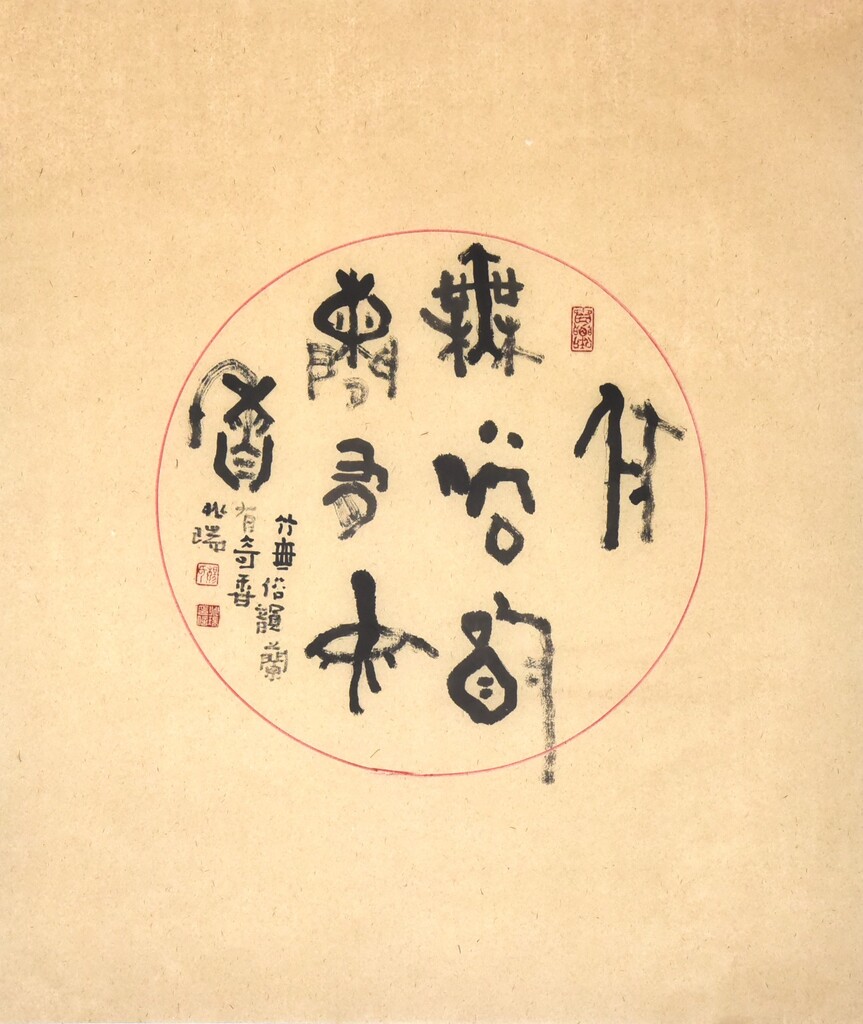 竹
無俗韻
蘭有奇
香
竹無俗韻蘭
有奇香
兆瑞